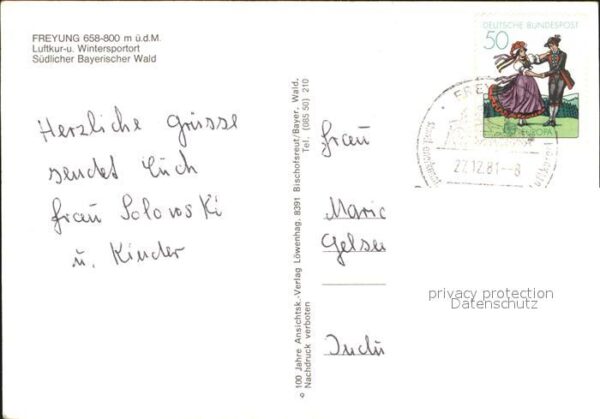 FREYUNG 658-800 m ü.d.M.
Luftkur-u. Wintersportort
Südlicher Bayerischer Wald
Herzliche Grüsse
sendet Euch
Frau
u. Kinder
© 100 Jahre Ansichtsk.-Verlag Löwenhag. 8391 Bischofsreut/Bayer. Wald.
Nachdruck verboten
Tel. (085 50) 210
DEUTSCHE BUNDESPOST
50
EUROPA
27.12.81-8
Frau
privacy protection
Datenschutz